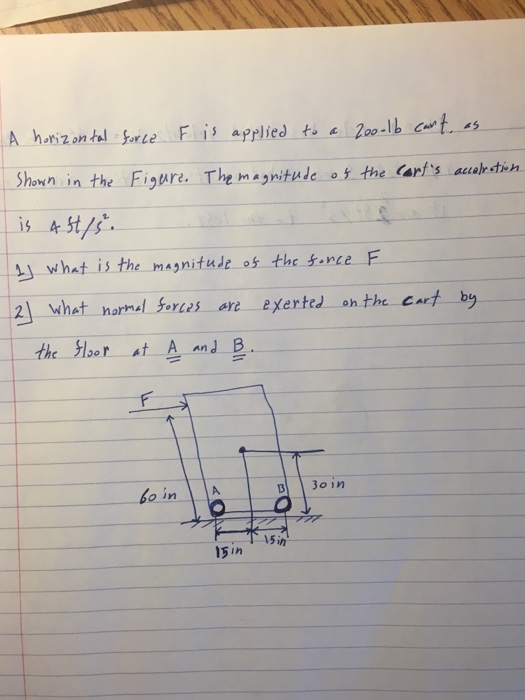 A horizontal force F is applied to a 200-lb cart. as
Shown in the Figure. The magnitude of the cart's accelration
is 4 ft/s².
1) What is the magnitude of the force F
2) What normal forces are exerted on the cart by
the floor at A and B.
F
60 in
A
B
30 in
15 in
15 in